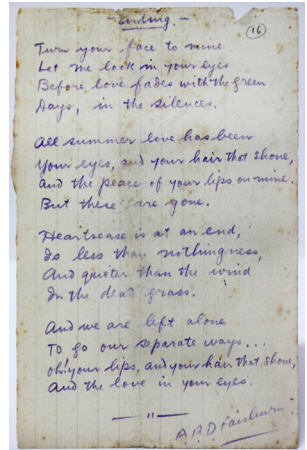 - Ending. -
(16)
Turn your face to mine
Let me look in your eyes
Before love fades with the green
Days, in the silences.
All summer love has been
Your eyes, and your hair that shone,
And the peace of your lips on mine.
But these are gone.
Heartsease is at an end,
Is less than nothingness,
And quieter than the wind
In the dead grass.
And we are left alone
To go our separate ways...
oh! your lips, and your hair that shone,
And the love in your eyes.
— " —
A.R.D. Fairburn.